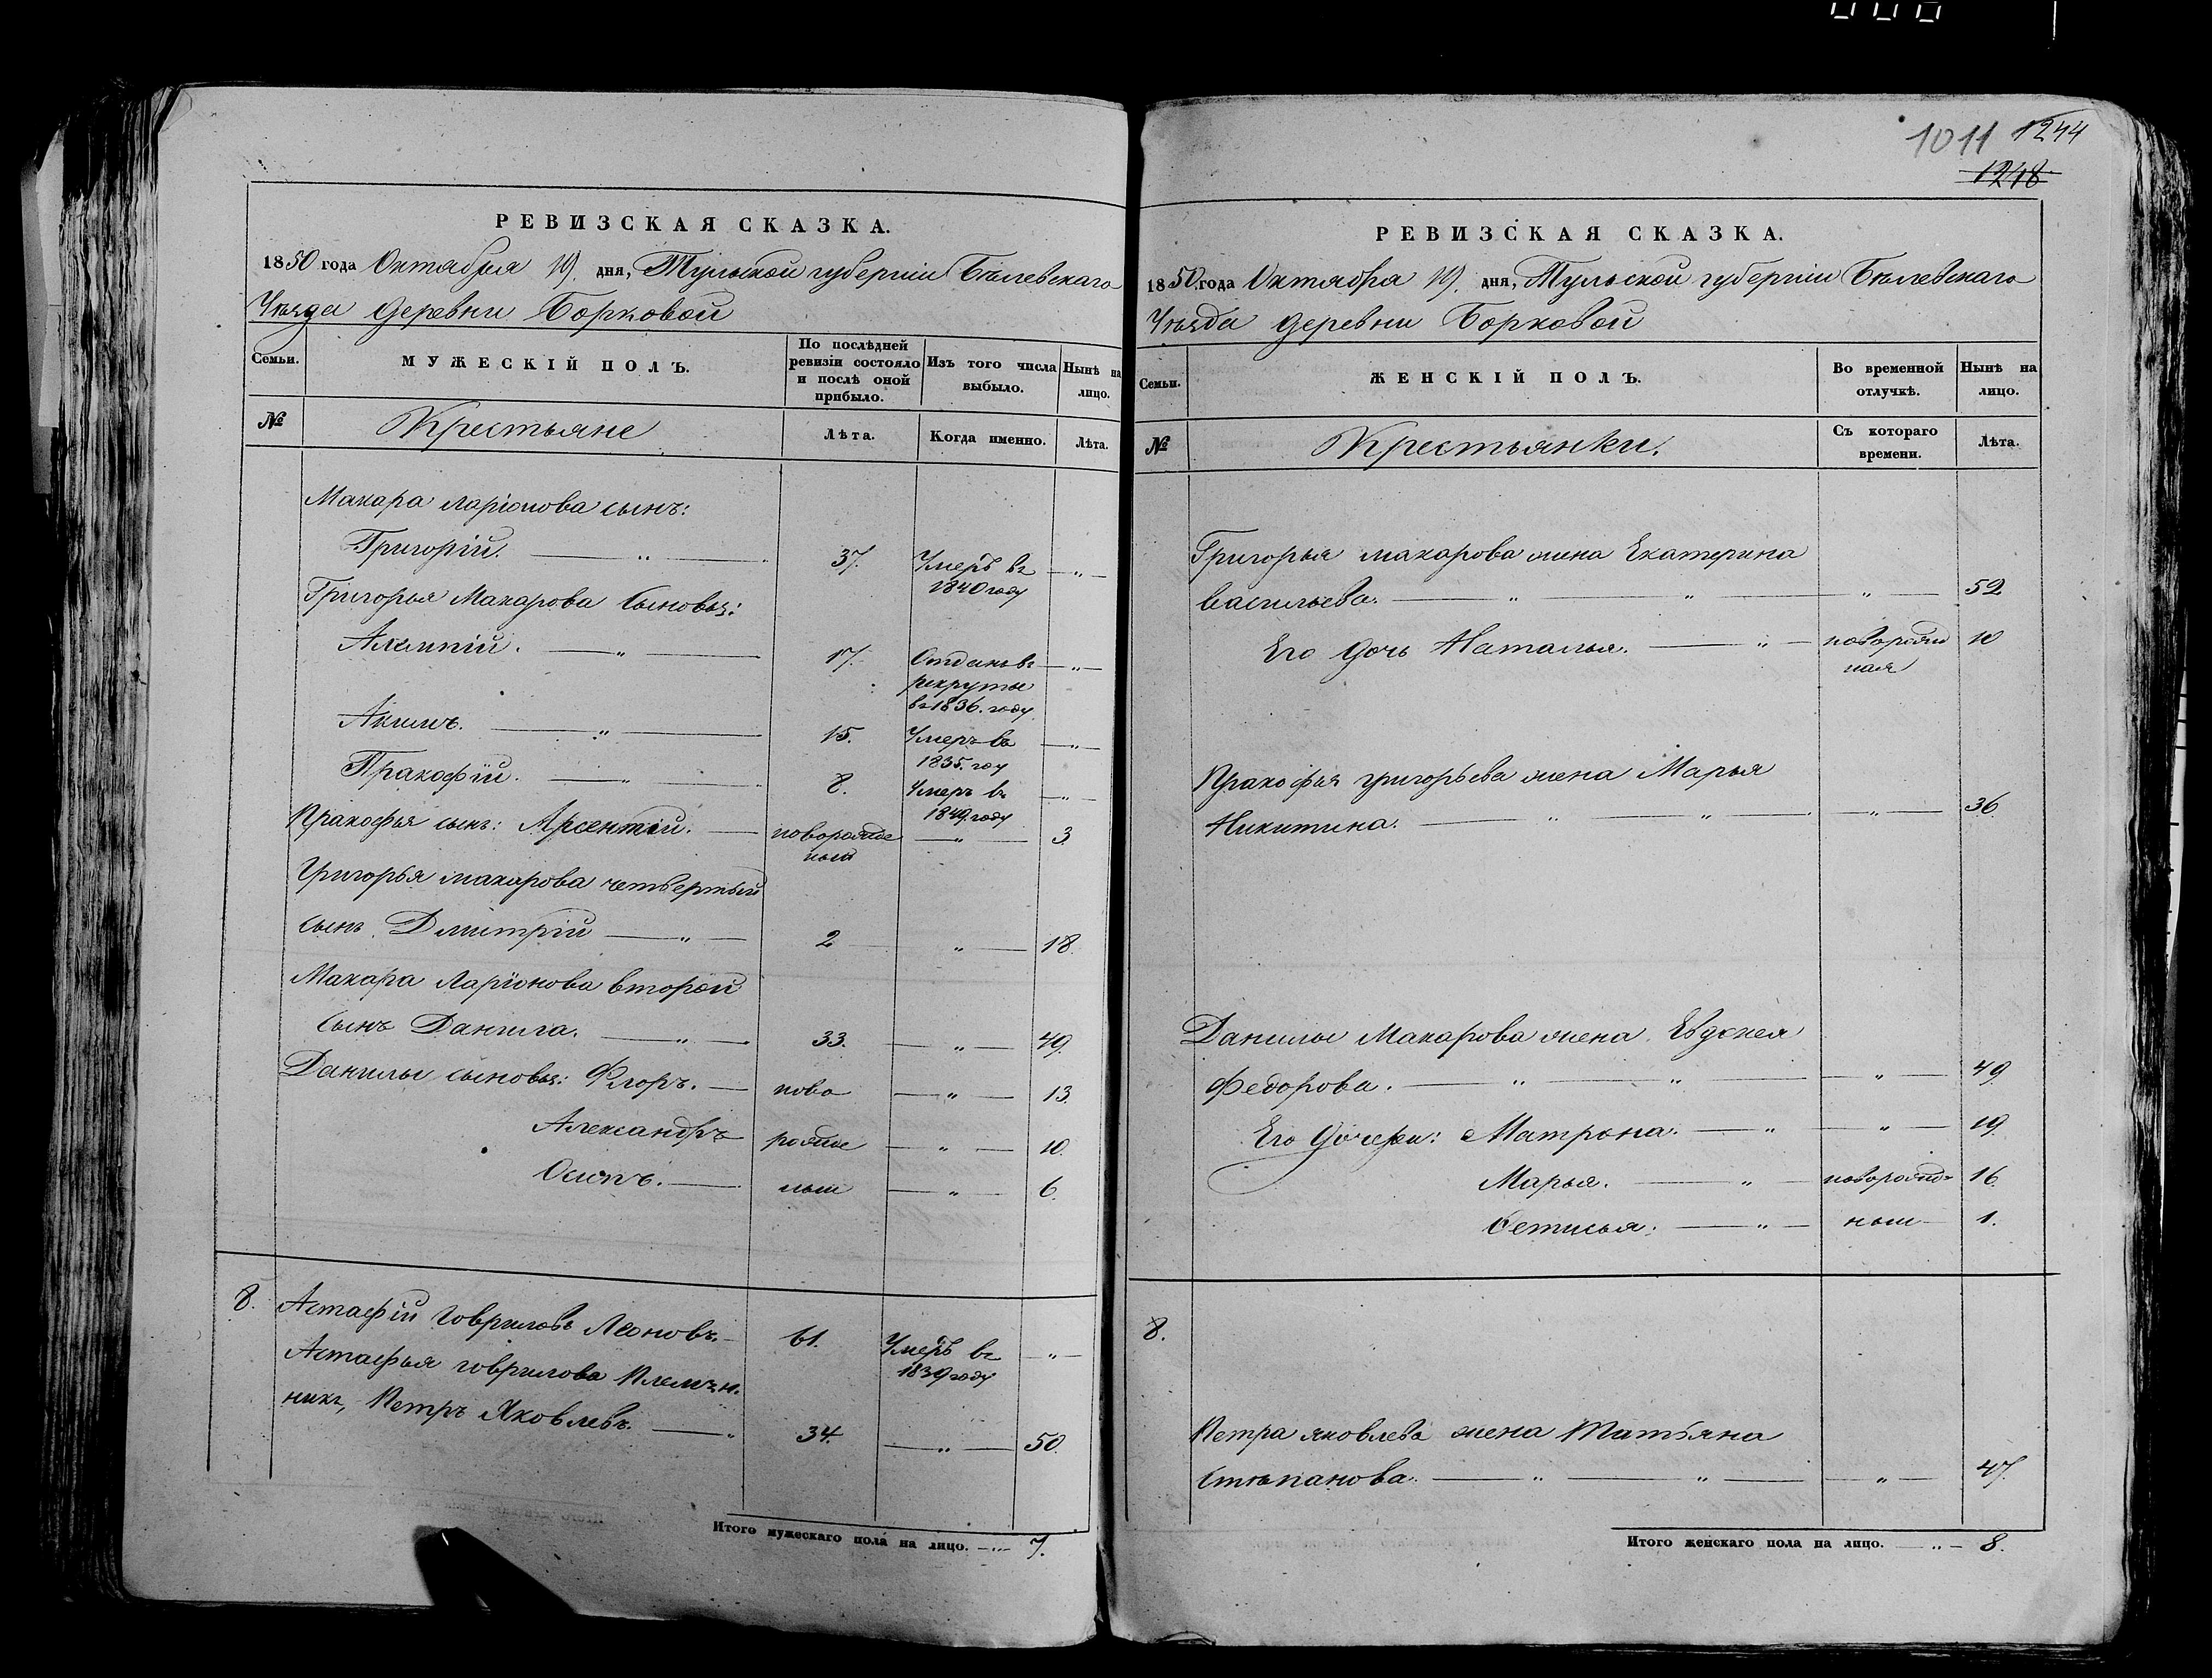 1011 1244
1248
РЕВИЗСКАЯ СКАЗКА.
1850 года Октября 19. дня, Тульской губерніи Бѣлевскаго
Уѣзда деревни Борковой
Семьи.
МУЖЕСКІЙ ПОЛЪ.
По послѣдней ревизіи состояло и послѣ оной прибыло.
Изъ того числа выбыло.
Нынѣ на лицо.
№
Крестьяне
Лѣта.
Когда именно.
Лѣта.
Макара Ларіонова сынъ:
Григорій. — „ — 37. Умеръ въ — „ —
1840 году
Григорья Макарова сыновья:
Алемпій. — „ — 17. Отданъ въ — „ —
рекруты
въ 1836. году
Акимъ. — „ — 15. Умеръ въ — „ —
1835. году
Пракофій. — „ — 8. Умеръ въ — „ —
1849. году
Пракофья сынъ: Арсентій. — новорожден — „ — 3
ный
Григорья макарова четвертый
сынъ Дмитрій — „ — 2 — „ — 18.
Макара Ларіонова второй
сынъ Данила. — „ — 33. — „ — 49.
Данилы сыновья: Флоръ. — ново — „ — 13.
Александръ рожден — „ — 10.
Осипъ. — ныи — „ — 6.
8. Астафій Говриловъ Леоновъ. — 61. Умеръ въ — „ —
1839 году
Астафья говрилова Племян-
никъ, Петръ Яковлевъ. — „ 34. — „ — 50.
Итого мужескаго пола на лицо. — „ — 7.
РЕВИЗСКАЯ СКАЗКА.
1850. года Октября 19. дня, Тульской губерніи Бѣлевскаго
Уѣзда деревни Борковой
Семьи.
ЖЕНСКІЙ ПОЛЪ.
Во временной отлучкѣ.
Нынѣ на лицо.
№
Крестьянки.
Съ котораго времени.
Лѣта.
Григорья макарова жена Екатерина
васильева. — „ — „ — „ — 52
Его дочь Наталья. — „ — новорожден 10
ная
Пракофья григорьева жена Марья
Никитина. — „ — „ — „ — 36.
Данилы Макарова жена Евдокея
Федорова. — „ — „ — „ — 49.
Его дочери: Матрона. — „ — „ — 19.
Марья. — „ — новорожд- 16.
Фетисья. — „ — ныи — 1.
8.
Петра яковлева жена Татьяна
Стѣпанова. — „ — „ — „ — 47.
Итого женскаго пола на лицо. — „ — 8.